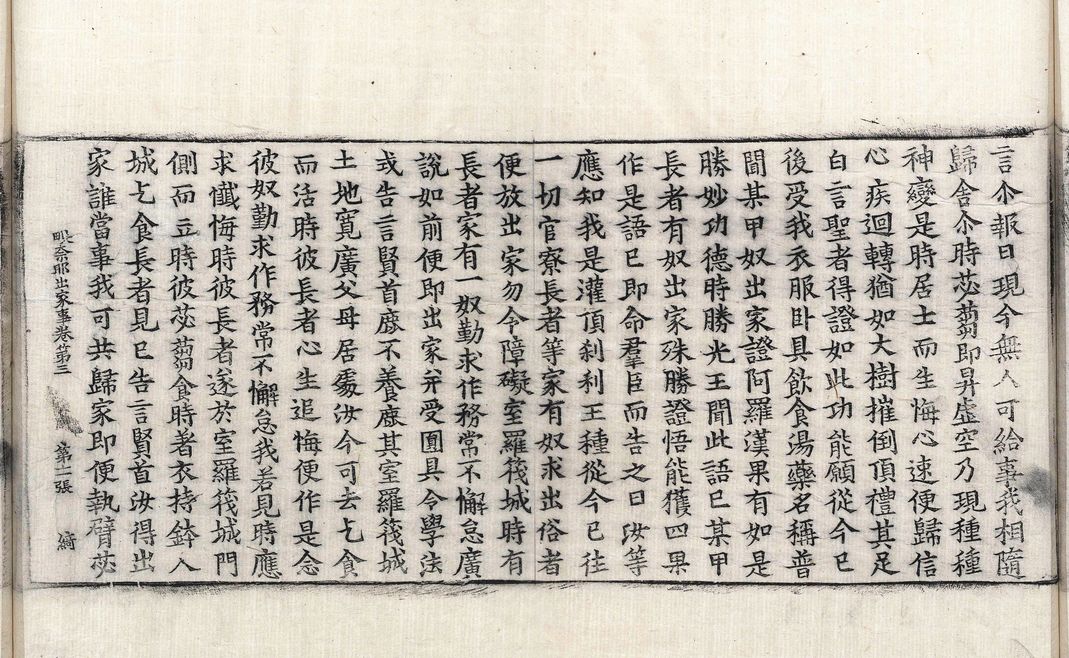 言尒報曰現今無人可給事我相隨
歸舍尒時苾蒭即昇虛空乃現種種
神變是時居士而生悔心速便歸信
心疾迴轉猶如大樹摧倒頂禮其足
白言聖者得證如此功能願從今已
後受我衣服卧具飮食湯藥名稱普
聞某甲奴出家證阿羅漢果有如是
勝妙功德時勝光王聞此語已某甲
長者有奴出家殊勝證悟能獲四果
作是語已即命羣臣而告之曰汝等
應知我是灌頂刹利王種從今已往
一切官寮長者等家有奴求出俗者
便放出家勿令障礙室羅筏城時有
長者家有一奴勤求作務常不懈怠廣
說如前便即出家幷受圓具令學法
或告言賢首麈不養麈其室羅筏城
土地寬廣父母居處汝今可去乞食
而活時彼長者心生追悔便作是念
彼奴勤求作務常不懈怠我若見時應
求懺悔時彼長者遂於室羅筏城門
側而立時彼苾蒭食時著衣持鉢入
城乞食長者見已告言賢首汝得出
家誰當事我可共歸家即便執臂苾
毗柰耶出家事卷第三 第二張 綺